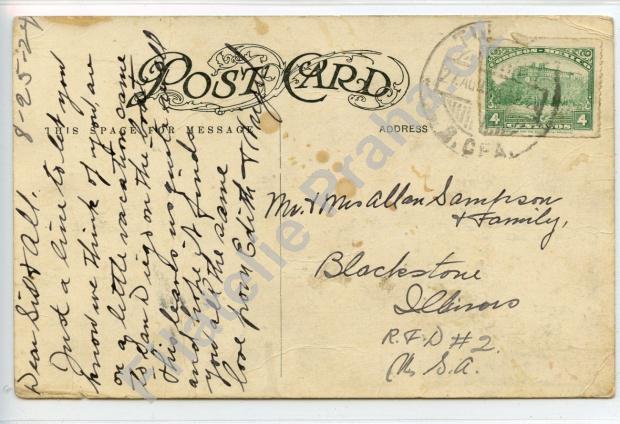 POST CARD
THIS SPACE FOR MESSAGE
ADDRESS
8-25-24
Dear Sid & All.
Just a line to let you
know we think of you, are
on a little vacation, came
to San Diego on the boat
this leaves us quite well
and hope it finds
you all the same
love from Edith &
Mr. & Mrs Allan Sampson
& Family,
Blackstone
Illinois
R.F.D #2.
U.S.A.
4
4
CENTAVOS
B. CFA.
Filatelie Praha